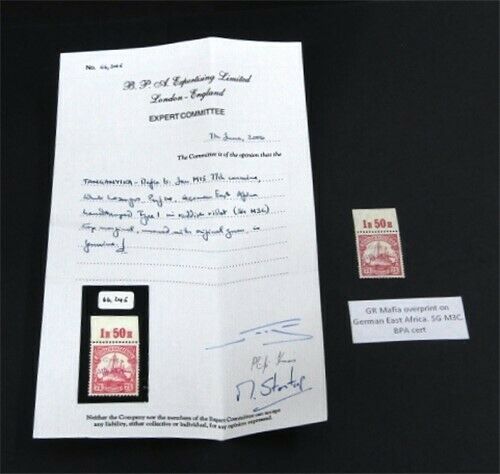 No. 66,245
B. P. A. Expertising Limited
London - England
EXPERT COMMITTEE
7th June, 2006
The Committee is of the opinion that the
TANGANYIKA - Mafia Is. Jan 1915
German East Africa
handstamped Type 1 in reddish violet (SG M3C)
Top marginal, unused with original gum, is
genuine
66,245
1R 50H
7½ 7½
M.
Neither the Company nor the members of the Expert Committee can accept
any liability, either collective or individual, for any opinion expressed.
1R 50H
7½ 7½
GR Mafia overprint on
German East Africa. SG M3C.
BPA cert